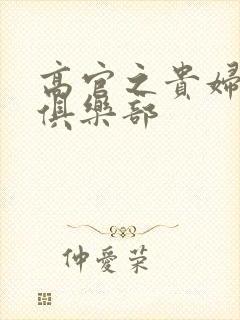 高官之貴婦
俱樂部
仲愛荣